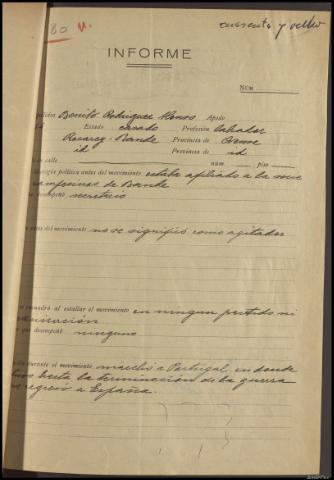 80 cuarenta y ocho
INFORME
NÚM.
Benito Rodriguez Alonso Apodo
Estado casado Profesión labrador
Bande Provincia de Orense
id Provincia de id
calle núm. piso
política antes del movimiento estaba afiliado a la
campesinos de Bande
secretario
antes del movimiento no se significó como agitador
al estallar el movimiento en ningun partido ni
que desempeñó ninguno
durante el movimiento marchó a Portugal, en donde
hasta la terminacion de la guerra
regresó a España.